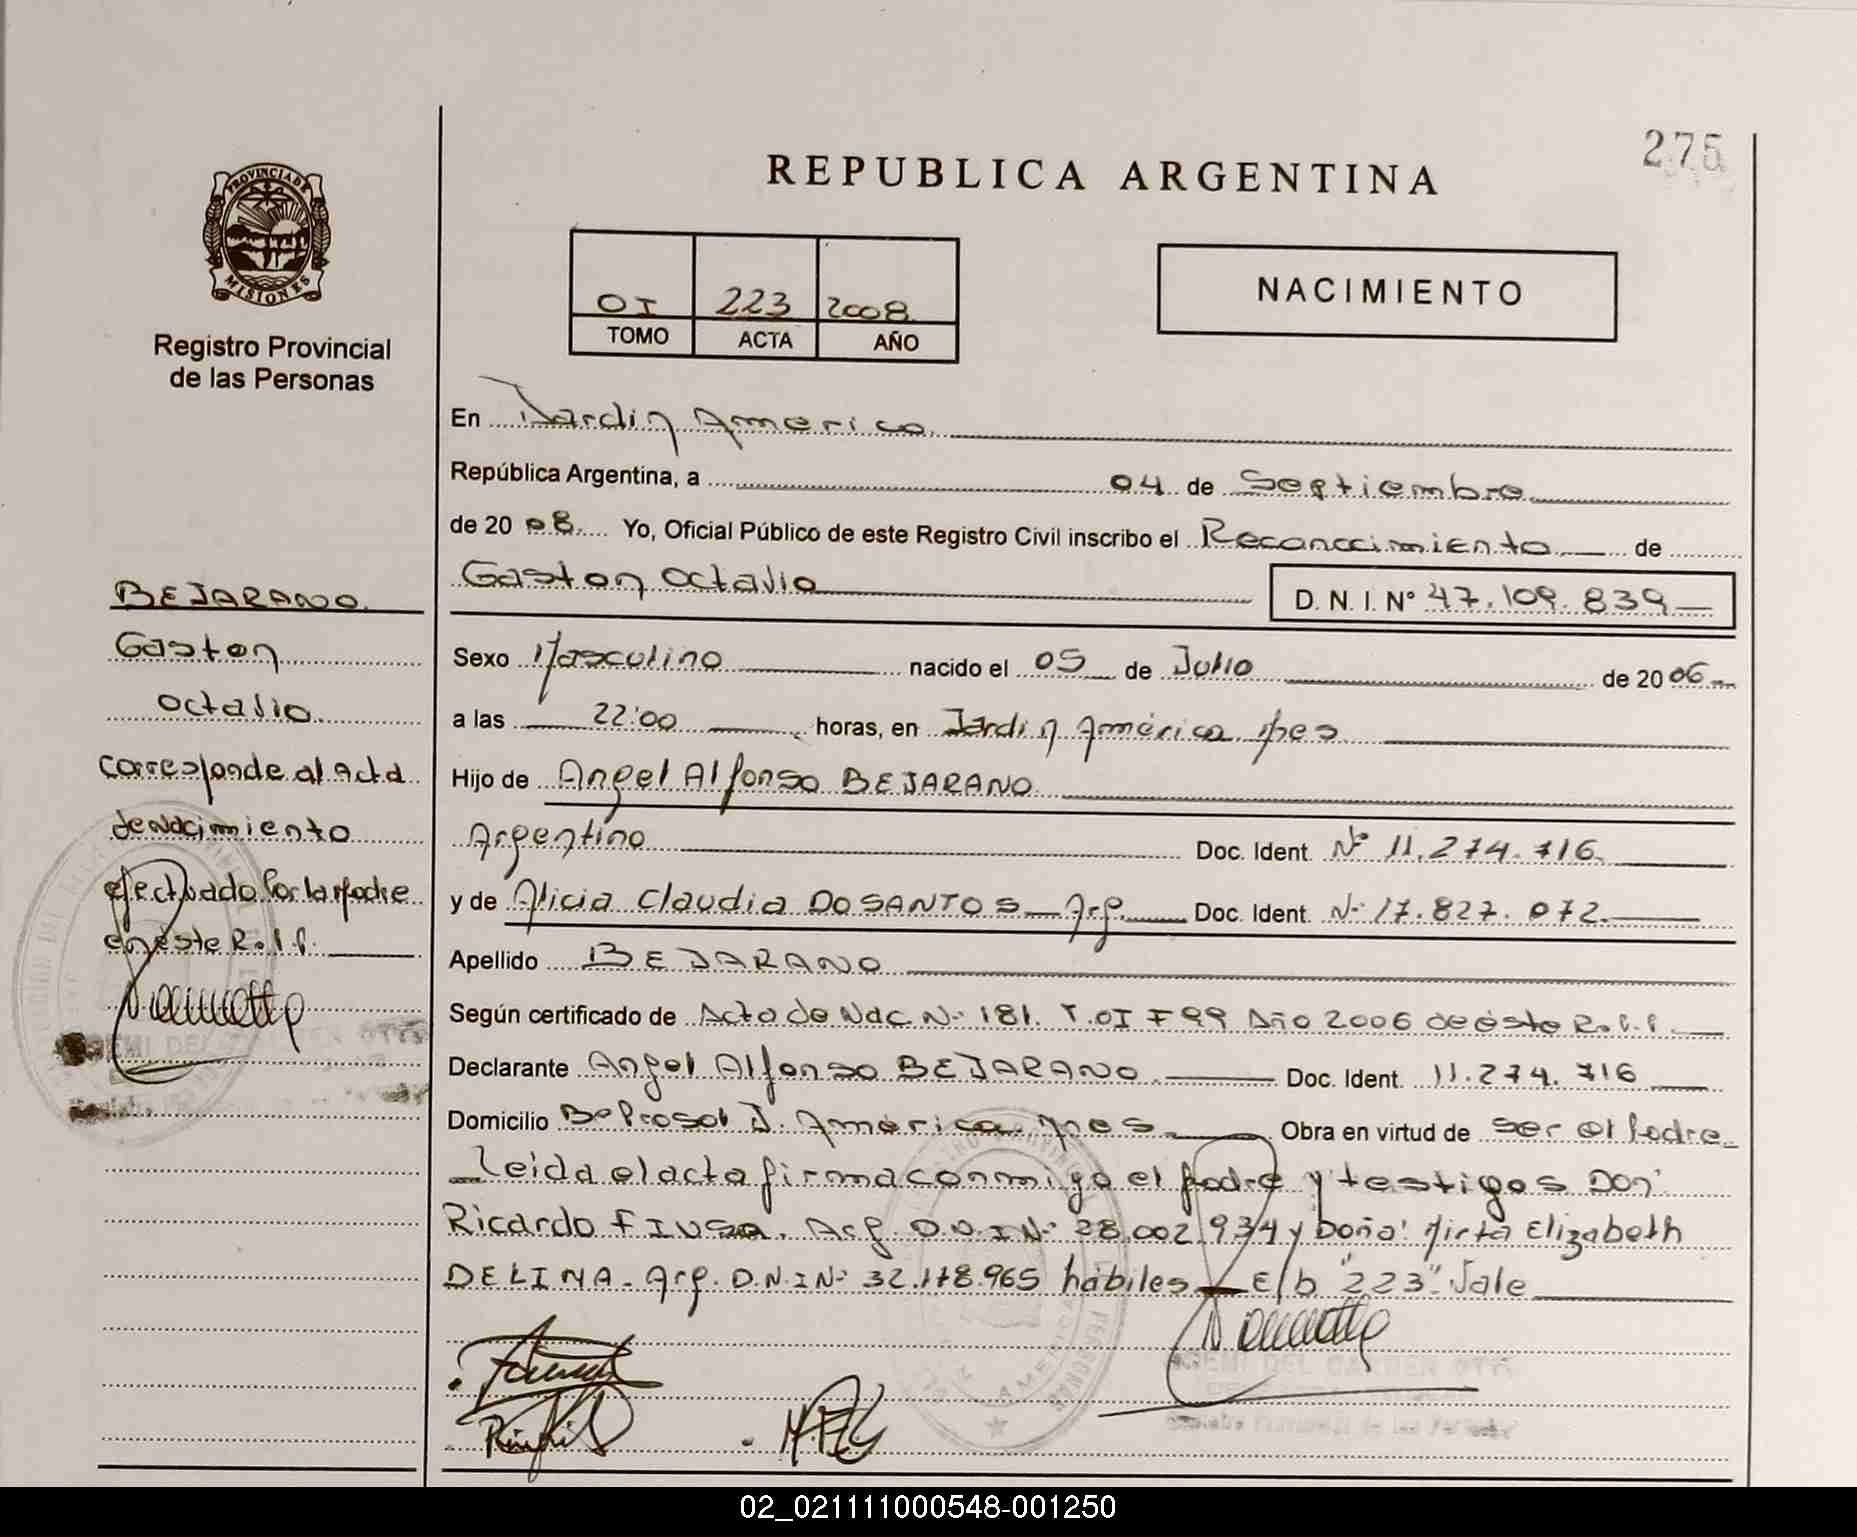 275
REPUBLICA ARGENTINA
PROVINCIA DE
MISIONES
Registro Provincial
de las Personas
OI 223 2008
TOMO ACTA AÑO
NACIMIENTO
En Jardin America
República Argentina, a 04 de Septiembre
de 2008 Yo, Oficial Público de este Registro Civil inscribo el Reconocimiento de
Gaston Octavio D. N. I. N° 47.109.839
Sexo Masculino nacido el 05 de Julio de 2006
a las 22:00 horas, en Jardin América Mnes
Hijo de Angel Alfonso BEJARANO
Argentino Doc. Ident. N° 11.274.716
y de Alicia Claudia DOSANTOS Arg. Doc. Ident. N° 17.827.072
Apellido BEJARANO
Según certificado de Acta de Nac. N° 181. T.OI F 99 Año 2006 de éste R.P.P.
Declarante Angel Alfonso BEJARANO Doc. Ident. 11.274.716
Domicilio J. América Mnes Obra en virtud de ser el Padre
Leida el acta firma conmigo el padre y testigos Don:
Ricardo FIUSA. Arg. D.N.I N° 28.002.934 y Doña: Mirta Elizabeth
DELIMA - Arg. D.N.I N° 32.178.965 hábiles E/b "223" Vale
BEJARANO
Gaston
Octavio
corresponde al Acta
de Nacimiento
efectuado Por la Madre
en éste R.P.P.
DEL CARMEN
02_021111000548-001250